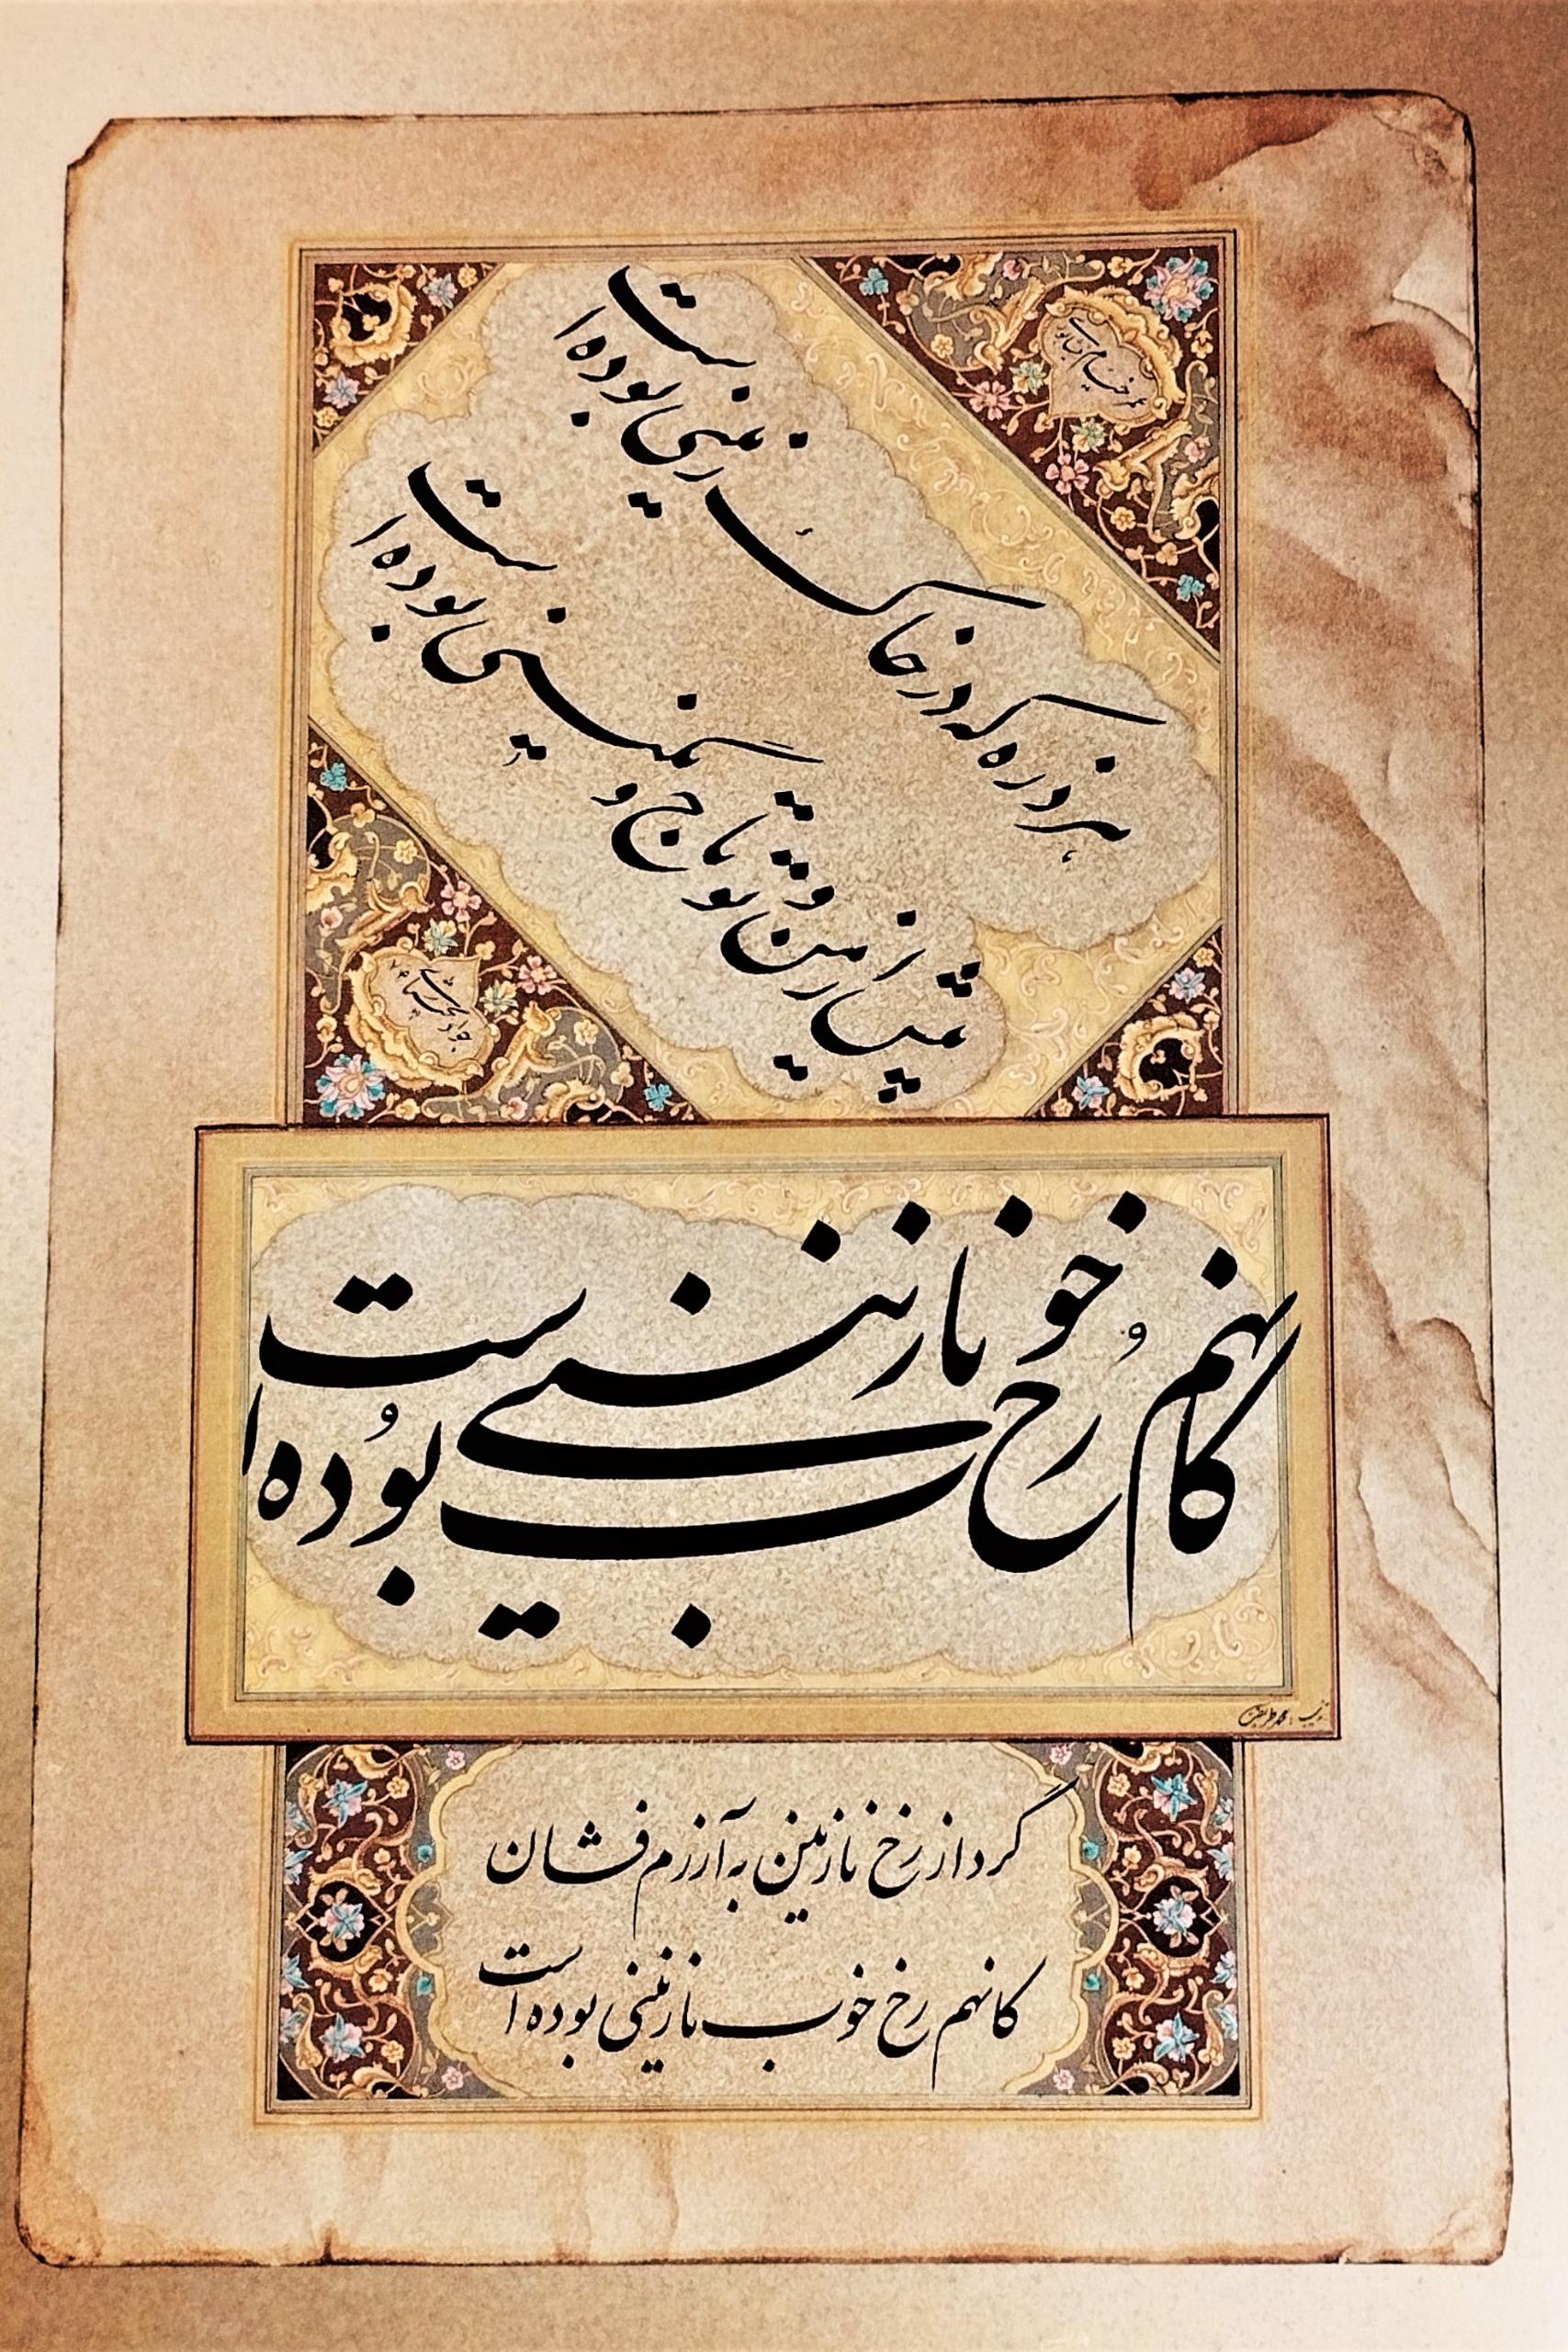 عمر خیام نیشابوری
هر ذره که در خاک زمینی بوده است
پیش از من و تو تاج و نگینی بوده است
کانهم رُخ خوُب نازنینی بوُده است
گرد از رخ نازنین به آزرم فشان
کانهم رخ خوب نازنینی بوده است